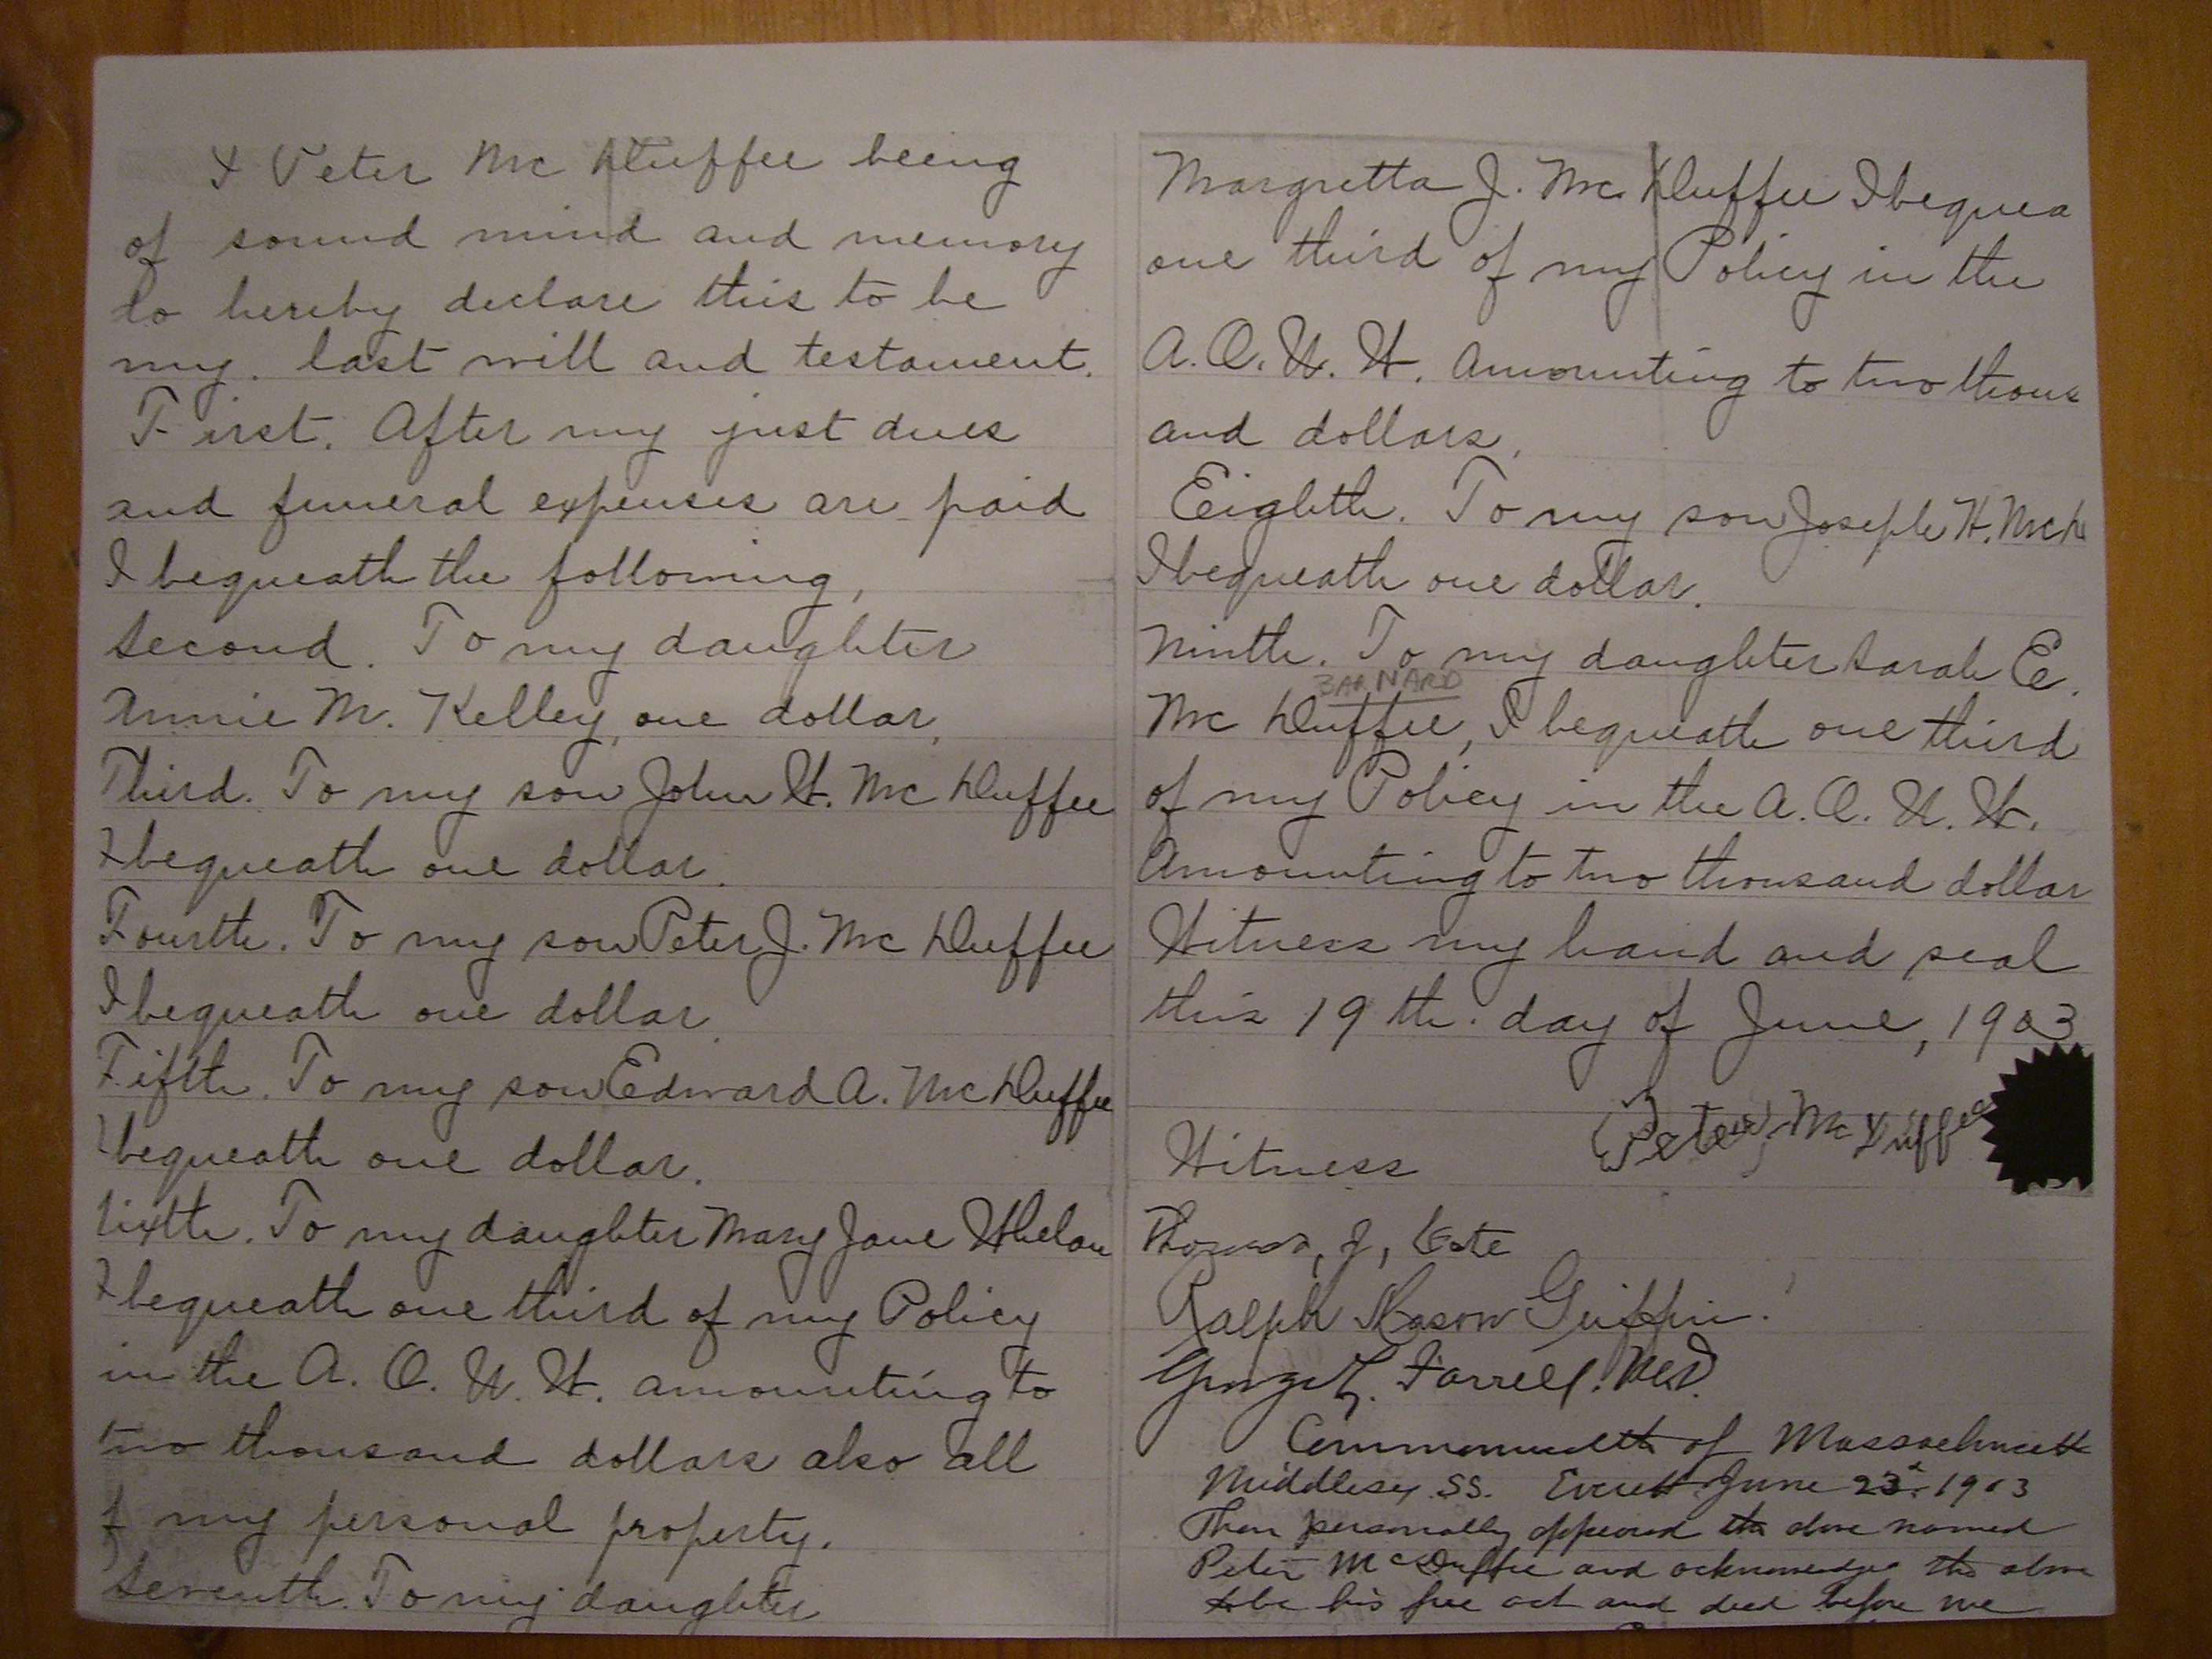 I Peter Mc Duffee being
of sound mind and memory
do hereby declare this to be
my. last will and testament.
First. After my just dues
and funeral expenses are paid
I bequeath the following,
Second. To my daughter
Annie M. Kelley, one dollar,
Third. To my son John H. Mc Duffee
I bequeath one dollar.
Fourth. To my son Peter J. Mc Duffee
I bequeath one dollar.
Fifth. To my son Edward A. Mc Duffee
I bequeath one dollar.
Sixth. To my daughter Mary Jane Whelan
I bequeath one third of my Policy
in the A. O. U. W. amounting to
two thousand dollars also all
of my personal property.
Seventh. To my daughter
Margretta J. Mc. Duffee I bequea
one third of my Policy in the
A. O. U. W. Amounting to two thous
and dollars,
Eighth. To my son Joseph H. Mc D
I bequeath one dollar.
Ninth. To my daughter Sarah E.
BARNARD
Mc Duffee, I bequeath one third
of my Policy in the A. O. U. W.
Amounting to two thousand dollar
Witness my hand and seal
this 19 th. day of June, 1903
Peter Mc Duffee
Witness
Thomas, J,
Ralph Mason Griffin.
George L. Farrell. M.D.
Commonwealth of Massachusett
Middlesex SS. Everett June 23d 1903
Then personally appeared the above named
Peter McDuffee and acknowledge the above
to be his free act and deed before me